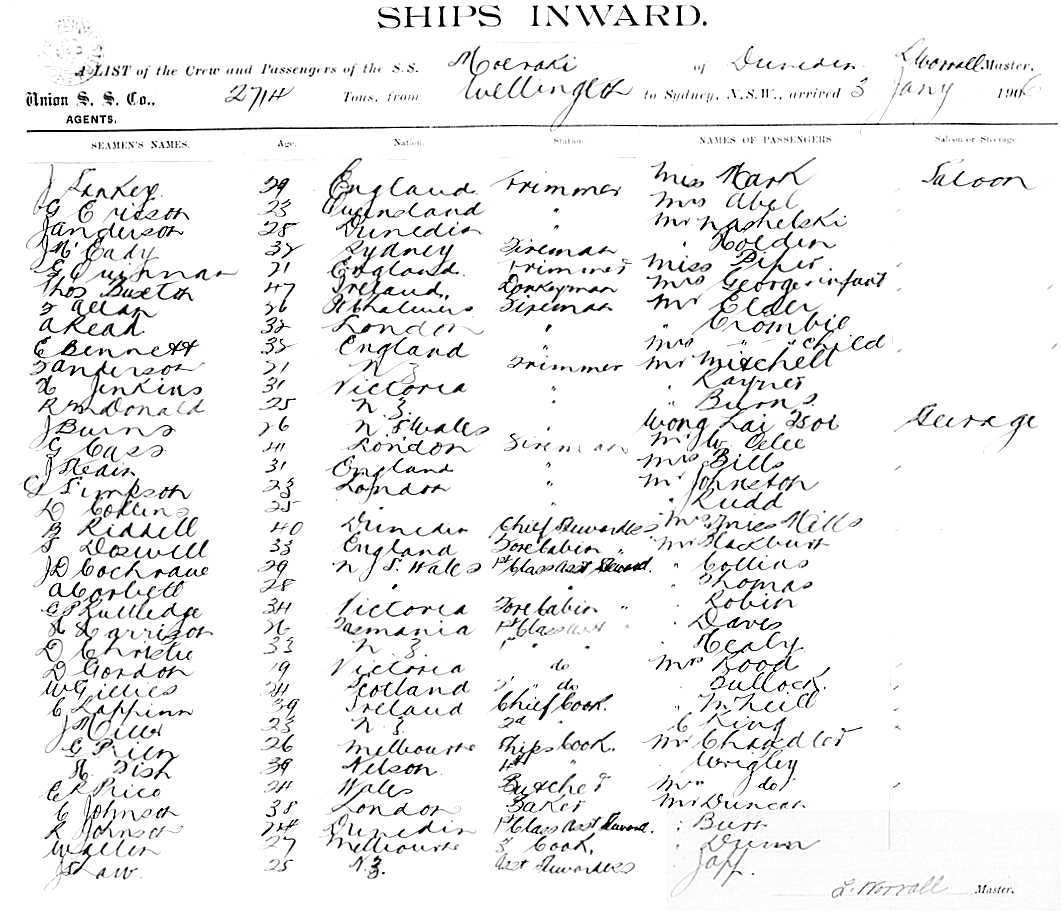 SHIPS INWARD.
A LIST of the Crew and Passengers of the S.S. Moeraki of Dunedin L Worrall Master.
Union S. S. Co., 2714 Tons, from Wellington to Sydney, N.S.W., arrived 3 Jany 1906
AGENTS.
SEAMEN'S NAMES. Age. Nation. Station. NAMES OF PASSENGERS Saloon or Steerage
J 29 England Trimmer Miss Mark Saloon
G Ericson 23 Queensland " Mrs Abel
J Anderson 28 Dunedin " Mr Nashelski
J McCady 32 Sydney Fireman " Holden
G Quinnan 21 England Trimmer Miss Piper
Thos Buxton 47 Ireland Donkeyman Mrs George & infant
Allan 26 Pt Chalmers Fireman Mr Elder
A Read 32 London " " Crombie
E Bennett 32 England " Mrs " " & Child
Anderson 21 N Z Trimmer Mr Mitchell
H Jenkins 31 Victoria " " Rayner
R McDonald 25 N. Z. " " Burns
J Burns 26 N S Wales " Wong Lai Steerage
G Cass 41 London Fireman Mr W.
J 31 England " Mrs Bills
G Simpson 23 London " Mr Johnston
D Collins 25 " " " Rudd
B Riddell 40 Dunedin Chief Stewardess Mrs & Miss Mills
S Doswell 33 England Forecabin " Mr Blackburn
J D Cochrane 29 N S Wales 1st Class Asst Steward. " Collins
A Corbett 28 " " " Thomas
C P Rutledge 34 Victoria Forecabin " " Robin
H Harrison 26 Tasmania 1st Class asst " " Davis
D Christie 33 N Z " " " Healy
D Gordon 19 Victoria do Mrs Rood
W Gillies 24 Scotland " " do " Bullock.
C Lappinn 39 Ireland Chief Cook. " McNeill
J Miller 23 N Z 2d " " C King
G Prien 26 Melbourne Ships Cook. Mr Chandler
H Fish 39 Nelson 4th " " Wrigley
E R Price 24 Wales Butcher Mrs do
C Johnson 38 London Baker Mr Duncan
R Johnson 24 Dunedin 1st Class Asst Steward. " Burr
W Allen 27 Melbourne 3 Cook. " Dunn
J Shaw. 25 N.Z. Asst Stewardess " Japp.
L. Worrall Master.